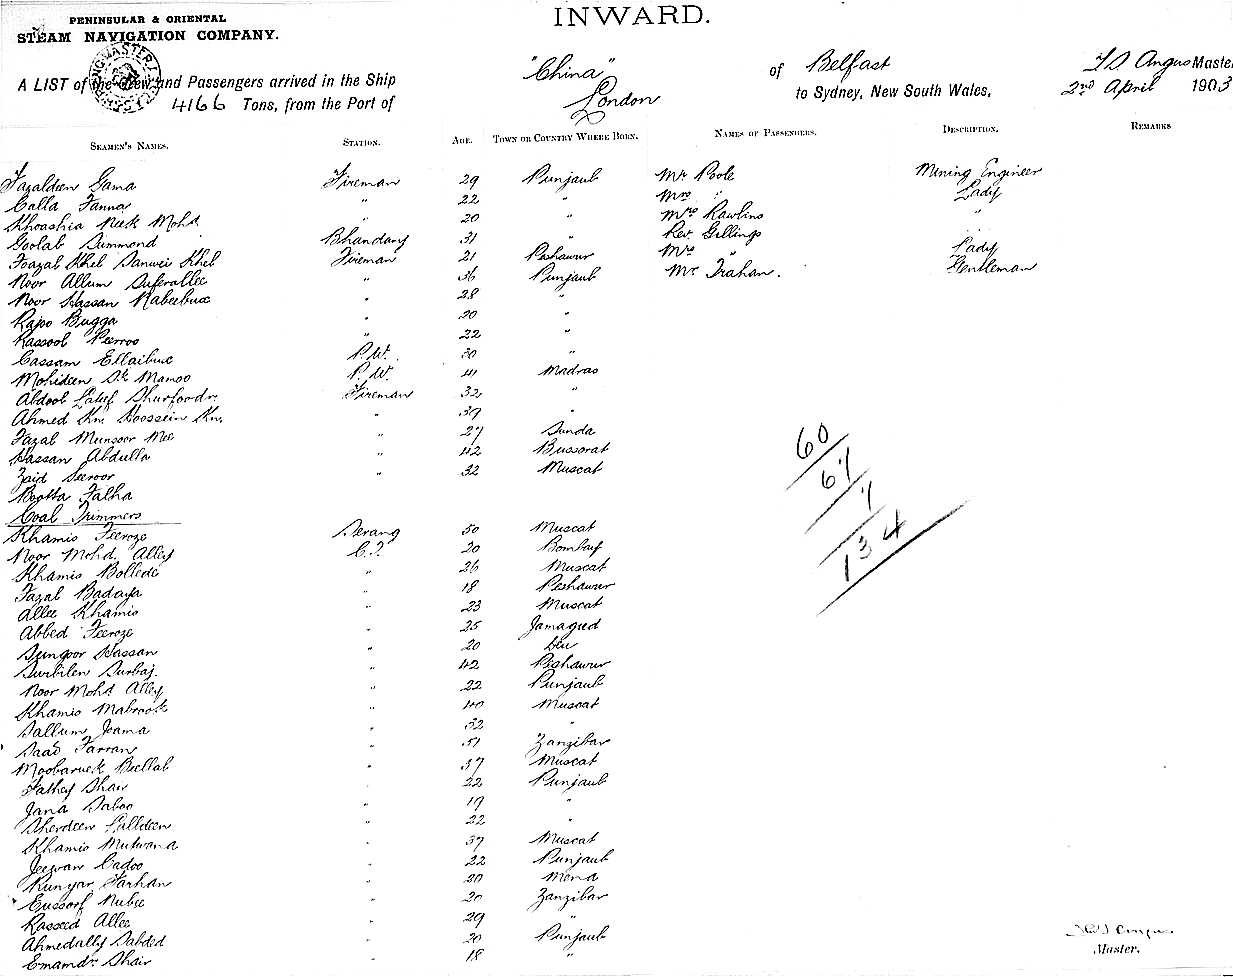 PENINSULAR & ORIENTAL
STEAM NAVIGATION COMPANY.
INWARD.
A LIST of the Crew and Passengers arrived in the Ship "China" of Belfast Master
4166 Tons, from the Port of London to Sydney, New South Wales, 2nd April 1903
SEAMEN'S NAMES. STATION. AGE. TOWN OR COUNTRY WHERE BORN. NAMES OF PASSENGERS. DESCRIPTION. REMARKS
Fazaldeen Gama Fireman 29 Punjaub Mr Poole Mining Engineer
Calla Fanna " 22 " Mrs " Lady
Khoashia Neek Mohd " 20 " Mrs Rawlins "
Goolab Summond Bhandary 31 " Rev. Gillings
Foazal Khel Sanwei Khel Fireman 21 Peshawur Mrs " Lady
Noor Allum Suferallee " 36 Punjaub Mr Trahan. Gentleman
Noor Hassan Nabeebux " 28 "
Rajoo Bugga " 20 "
Rassool Peeroo " 22 "
Cassam Ellaibux P.W. 30 "
Mohideen Sk Manoo P.W. 41 Madras
Abdool Latif Shurfoodn. Fireman 32 "
Ahmed Kn. Hoossein Kn. " 39 "
Fazal Munsoor Mee " 27 Sunda
Hassan Abdulla " 42 Bussorat
Zaid Seeroor " 32 Muscat
Bootta Falha
Coal Trimmers
Khamis Feeroze Serang 50 Muscat
Noor Mohd. Alley C.T. 20 Bombay
Khamis Bollede " 26 Muscat
Fazal Badaya " 18 Peshawur
Allee Khamis " 23 Muscat
Abbed Feeroze " 25 Jamagied
Sungoor Hassan " 20
Surbilen Surbaj. " 42 Peshawur
Noor Mohd Alley " 22 Punjaub
Khamis Mabrook " 40 Muscat
Sallum Jeama " 32 "
Saad Farran " 51 Zanzibar
Moobaruck Beellal " 37 Muscat
Fathey Shair " 22 Punjaub
Jana Saboo " 19 "
Sherdeen Lalldeen " 22 "
Khamis Mulwana " 37 Muscat
Jeewan Cadoo " 22 Punjaub
Runyar Farhan " 20
Eussoof Nubee " 20 Zanzibar
Rasseed Allee " 29 "
Ahmedally Sabded " 20 Punjaub
Emamdn Shair " 18 "
60
67
7
134
Master.